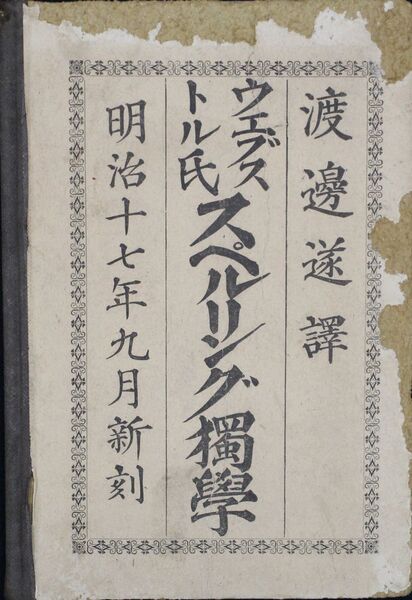 渡邊遂譯
ウェブス
トル氏
スペルリング獨學
明治十七年九月新刻